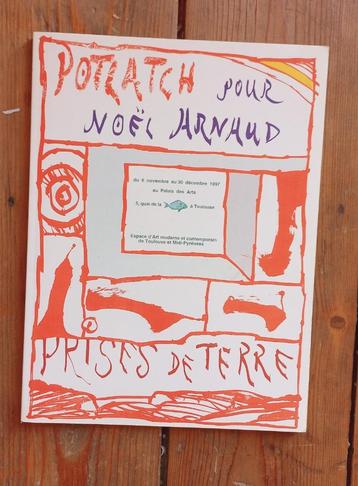 POTLATCH POUR
NOËL ARNAUD
du 6 novembre au 30 décembre 1997
au Palais des Arts
5, quai de la à Toulouse
Espace d'Art moderne et contemporain
de Toulouse et Midi-Pyrénées
PRISES DE TERRE